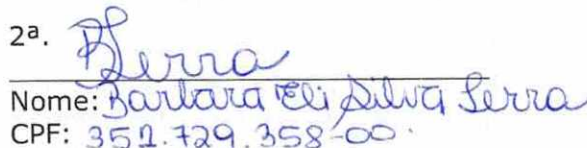 2ª. BSerra
Nome: Barbara Eli Silva Serra
CPF: 351.729.358-00.